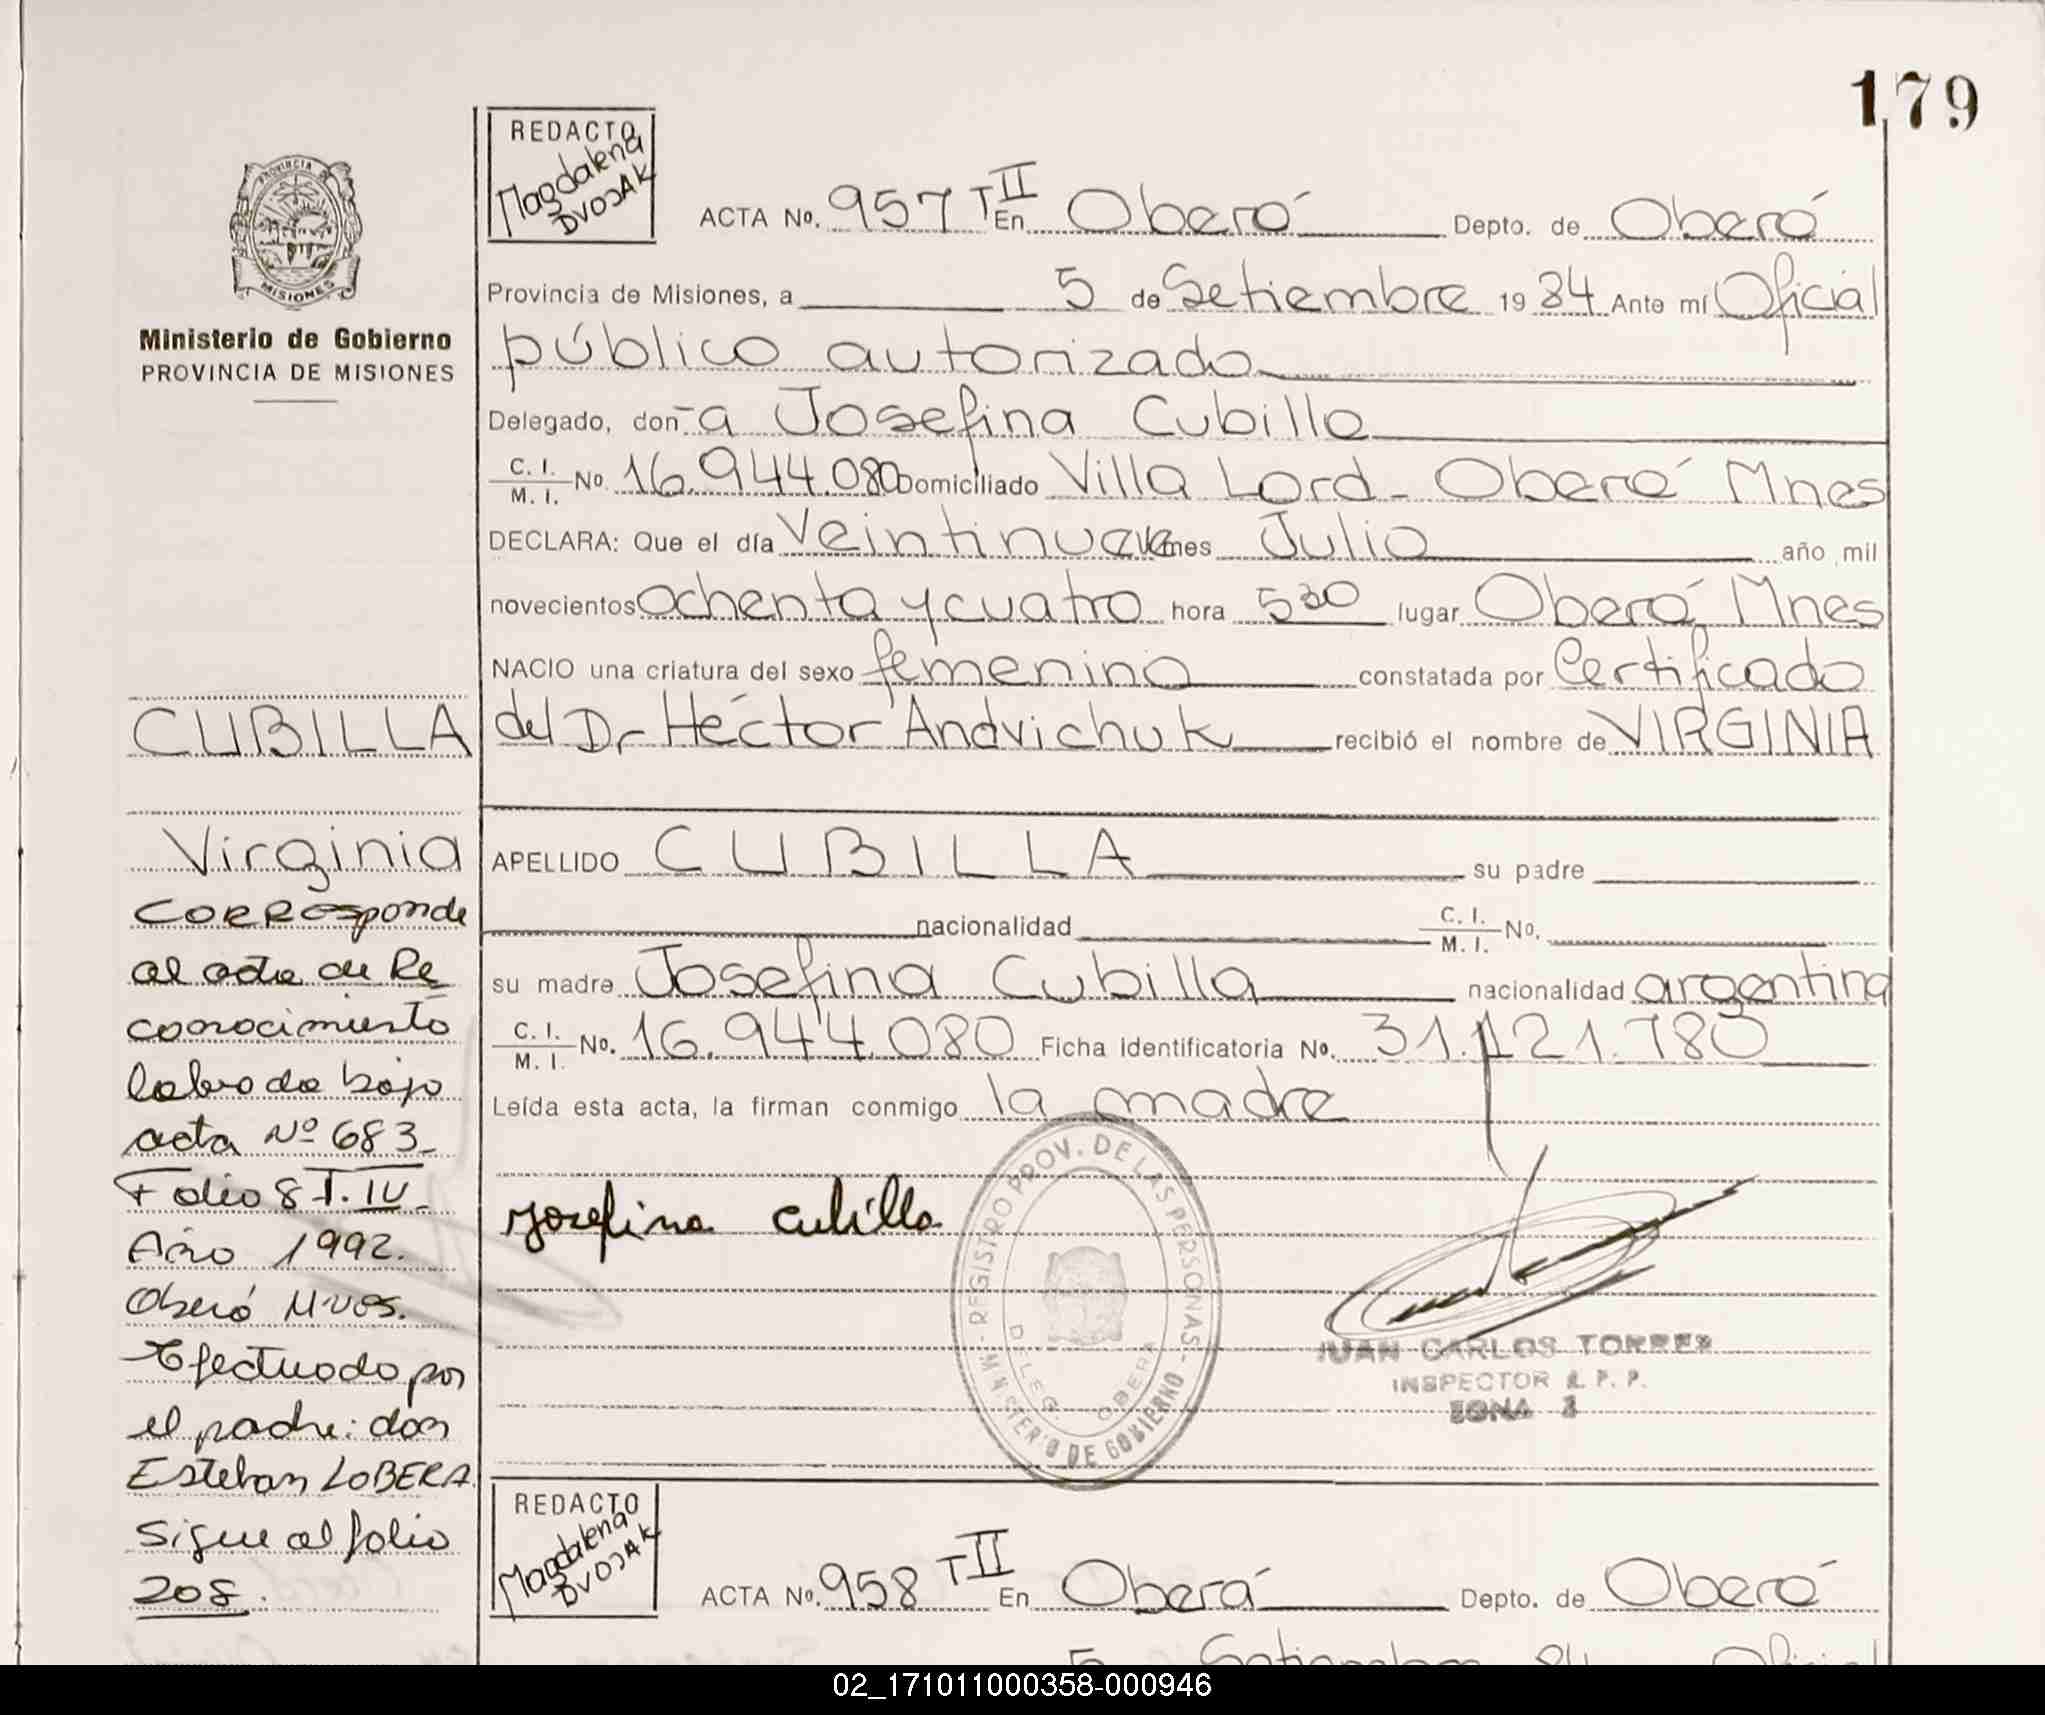 179
REDACTO
Magdalena
DVOJAK
ACTA No. 957 T II En Oberá Depto. de Oberá
PROVINCIA
MISIONES
Provincia de Misiones, a 5 de Setiembre 1984 Ante mí Oficial
Ministerio de Gobierno
PROVINCIA DE MISIONES
público autorizado
Delegado, don-a Josefina Cubilla
C. I.
M. I. No 16.944.080 Domiciliado Villa Lord - Oberá Mnes
DECLARA: Que el día Veintinueve mes Julio año mil
novecientos ochenta y cuatro hora 5 30 lugar Oberá Mnes
NACIO una criatura del sexo femenino constatada por Certificado
CUBILLA
del Dr Héctor Andvichuk recibió el nombre de VIRGINIA
Virginia
APELLIDO CUBILLA su padre
nacionalidad C. I.
M. I. No.
su madre Josefina Cubilla nacionalidad argentina
C. I.
M. I. No. 16.944.080 Ficha Identificatoria No. 31.121.780
Leída esta acta, la firman conmigo la madre
Corresponde
al acta de Re
conocimiento
labrada bajo
acta Nº 683.
Folio 8 T. IV.
Año 1992.
Oberá Mnes.
Efectuado por
el padre: don
Esteban LOBERA
Sigue al folio
208.
Josefina Cubilla
REGISTRO PROV. DE LAS PERSONAS - MINISTERIO DE GOBIERNO
DELEG. OBERA
JUAN CARLOS TORRES
INSPECTOR R. P. P.
ZONA
REDACTO
Magdalena
DVOJAK
ACTA No. 958 T II En Oberá Depto. de Oberá
5 Setiembre 84 Oficial
02_171011000358-000946